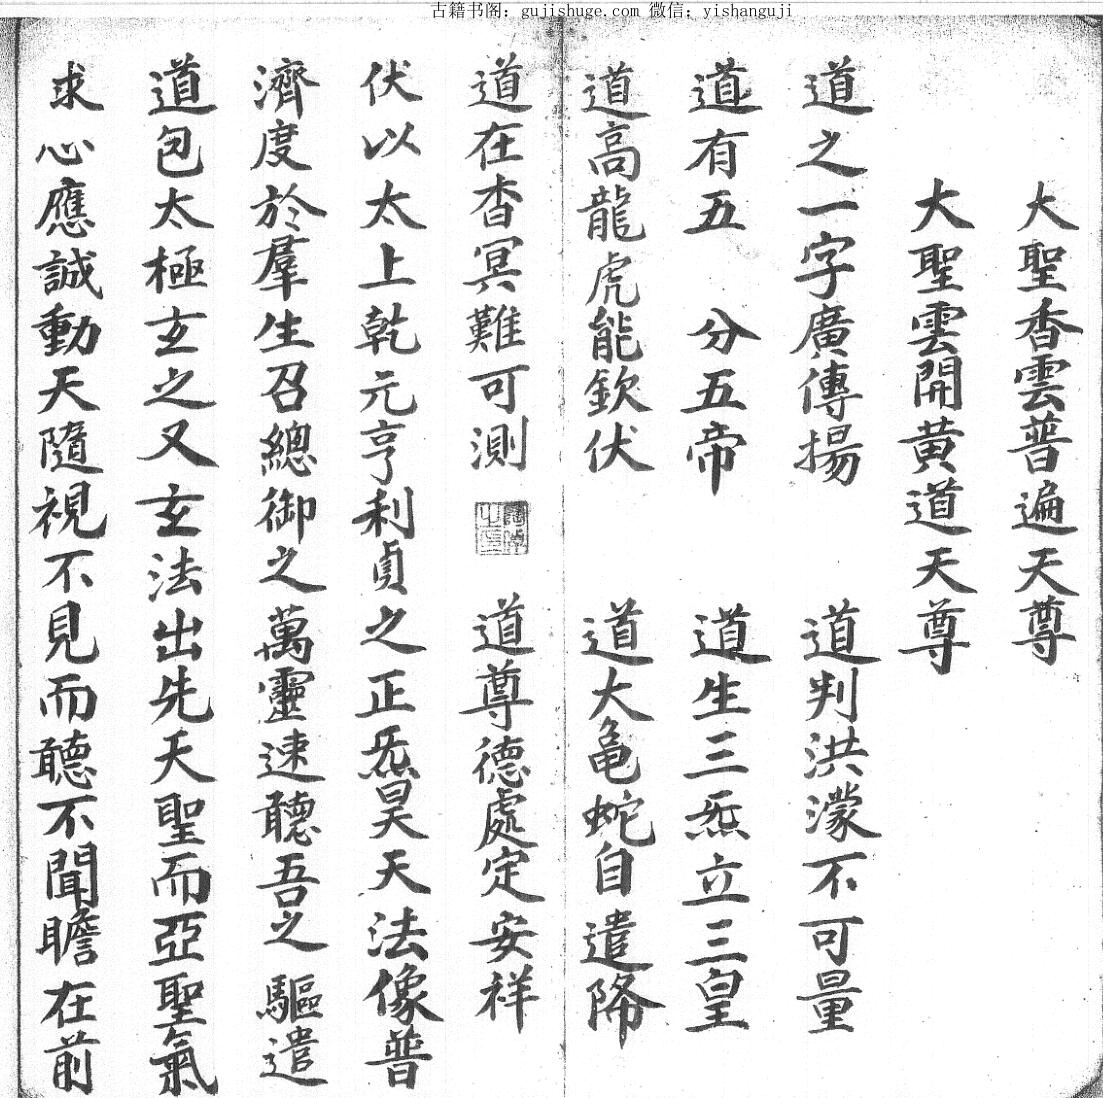 古籍书阁：gujishuge.com 微信：yishanguji
大聖香雲普遍天尊
大聖雲開黃道天尊
道之一字廣傳揚 道判洪濛不可量
道有五 分五帝 道生三炁立三皇
道高龍虎能欽伏 道大亀蛇自遣降
道在杳冥難可測 道尊德處定安祥
伏以太上乾元亨利貞之正炁昊天法像普
濟度於羣生召總御之萬靈速聽吾之驅遣
道包太極玄之又玄法出先天聖而亞聖氣
求心應誠動天隨視不見而聽不聞瞻在前